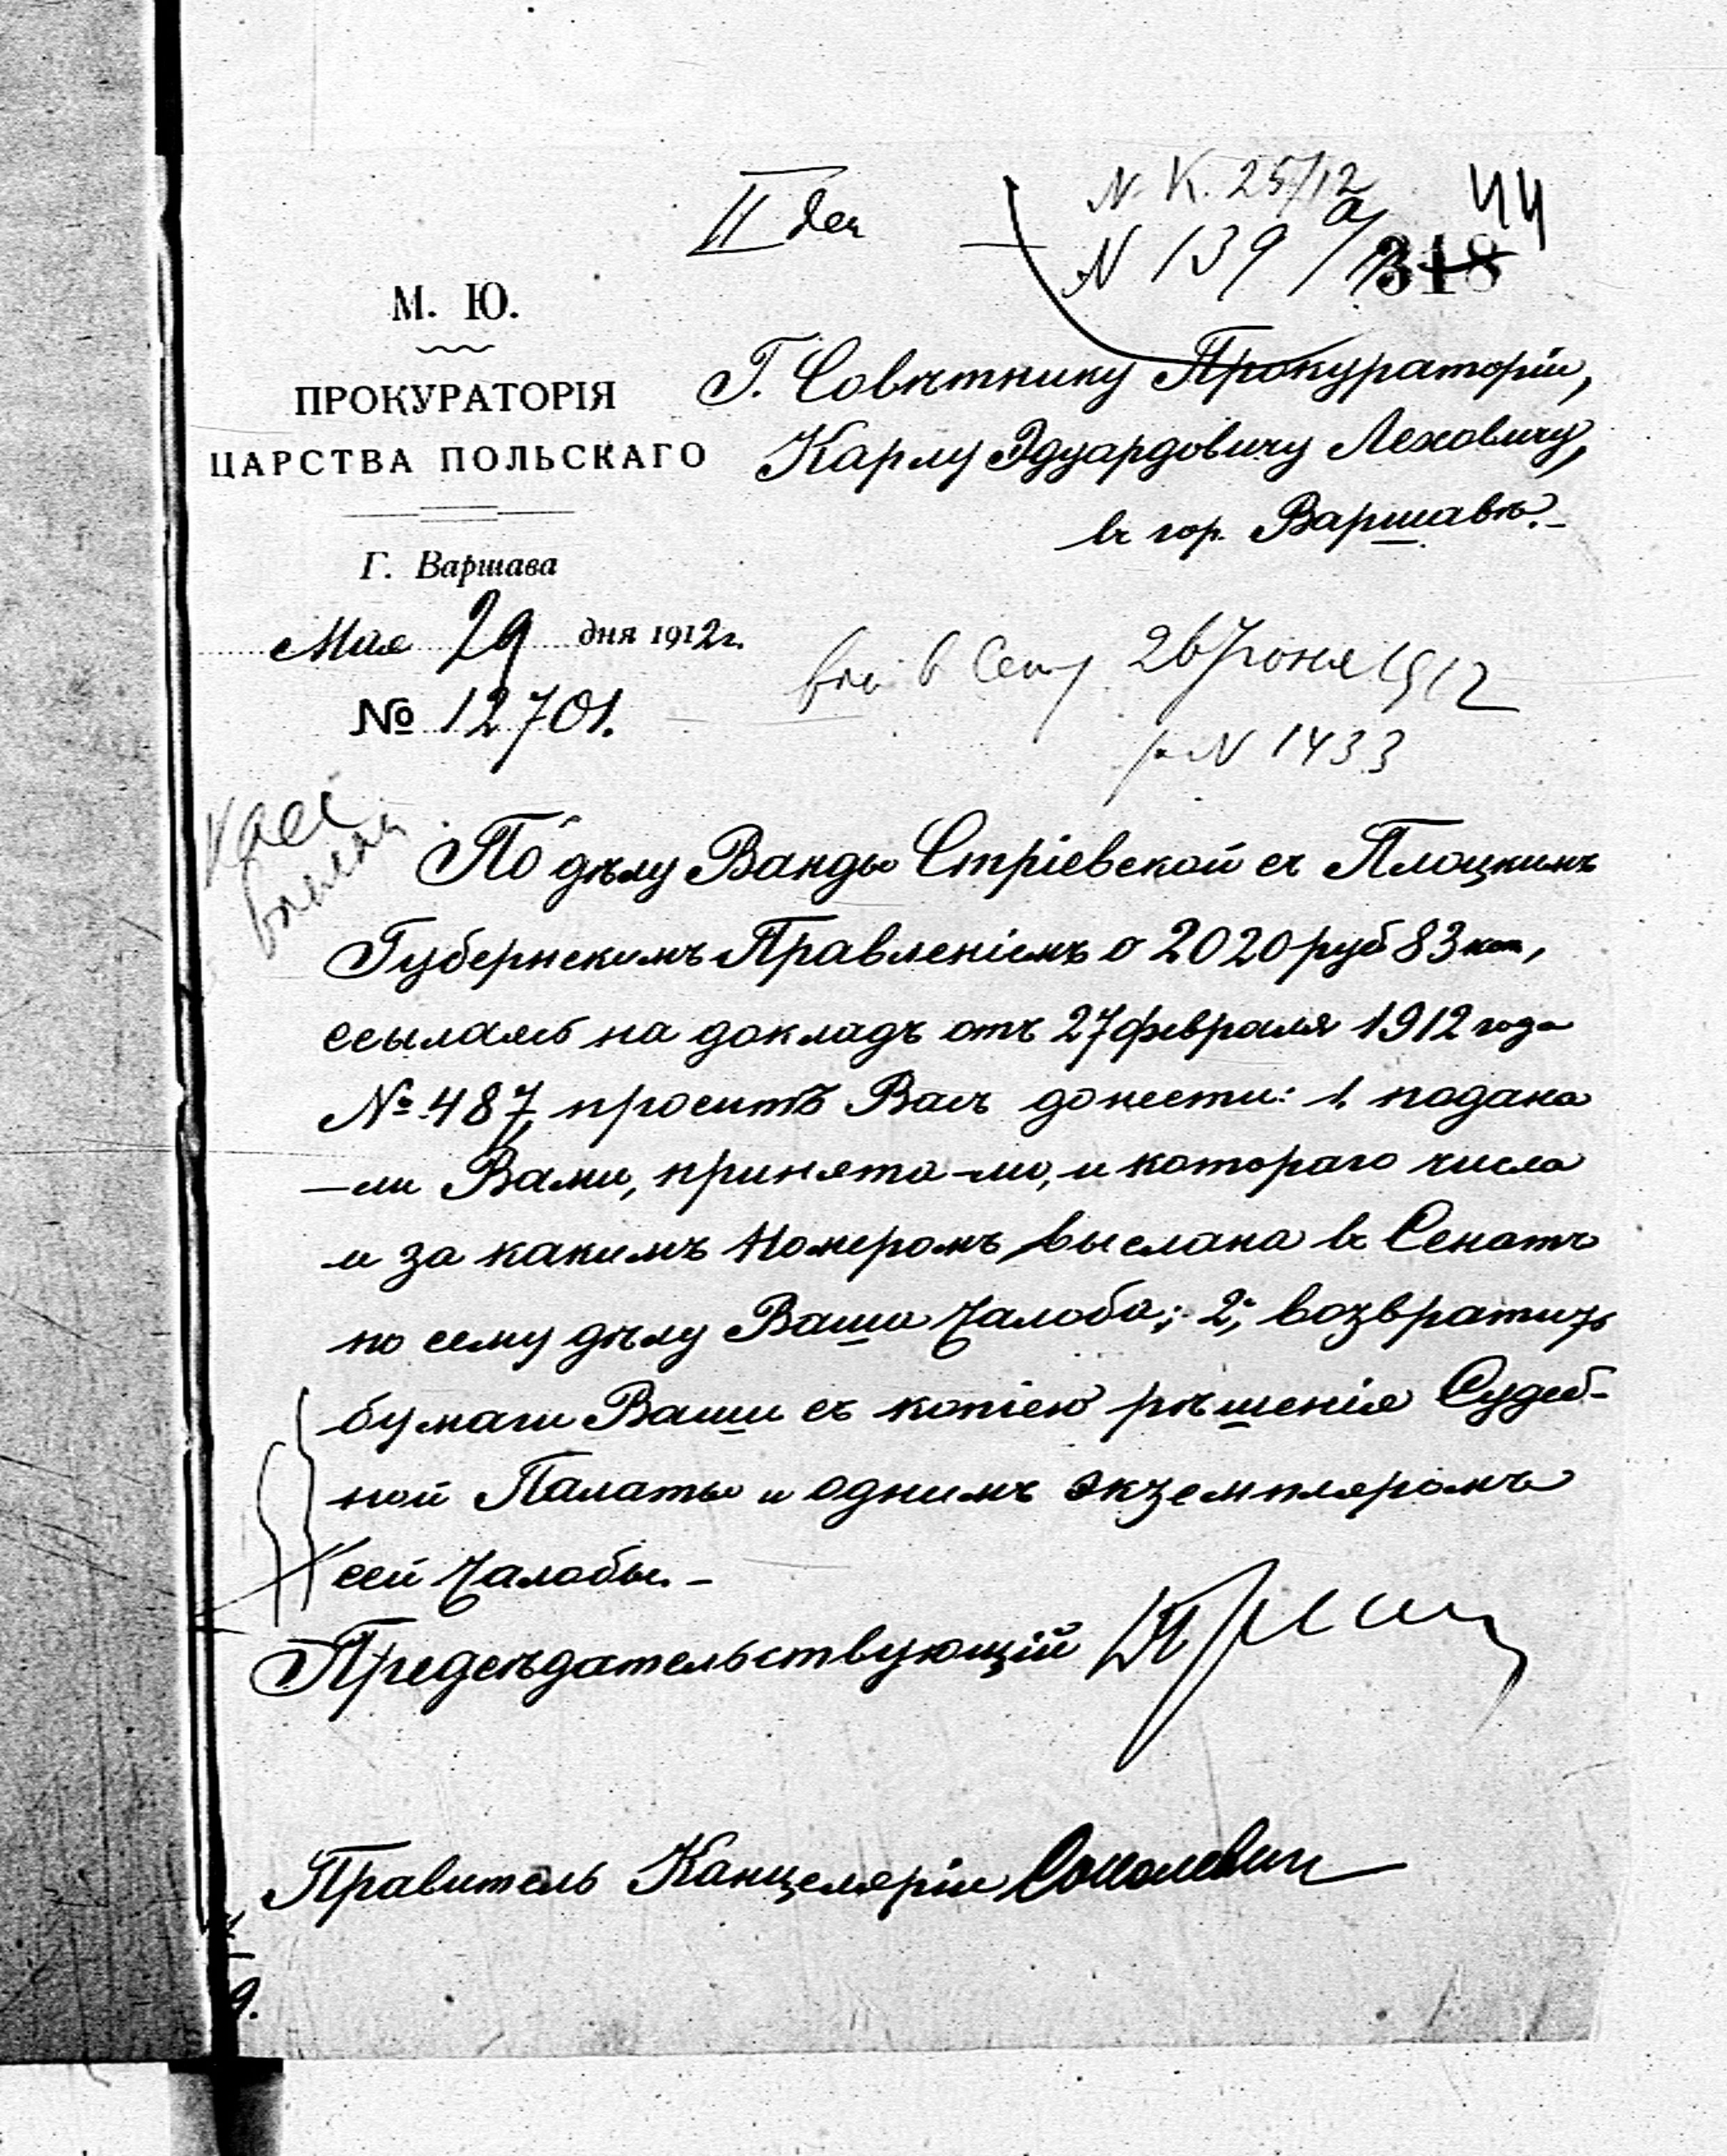 II
N. К. 25/12
44
N 139
318
М. Ю.
ПРОКУРАТОРІЯ
ЦАРСТВА ПОЛЬСКАГО
Г. Варшава
Мая 29 дня 1912 г.
№ 12701.
Г. Совѣтнику Прокураторіи,
Карлу Эдуардовичу Леховичу,
въ гор. Варшавѣ.-
въ 26 Іюня 1912
N 1433
По дѣлу Ванды Стріевской съ Плоцкимъ
Губернскимъ Правленіемъ о 2020 руб 83 коп,
ссылаясь на докладъ отъ 27 февраля 1912 года
№ 487, проситъ Васъ донести: 1, подана
-ли Вами, принята-ли, и котораго числа
и за какимъ Номеромъ, выслана въ Сенатъ
по сему дѣлу Ваша жалоба; 2, возвратить
бумаги Ваши съ копіею рѣшенія Судеб-
ной Палаты и однимъ экземпляромъ
сей жалобы.-
Предсѣдательствующій
Правитель Канцеляріи